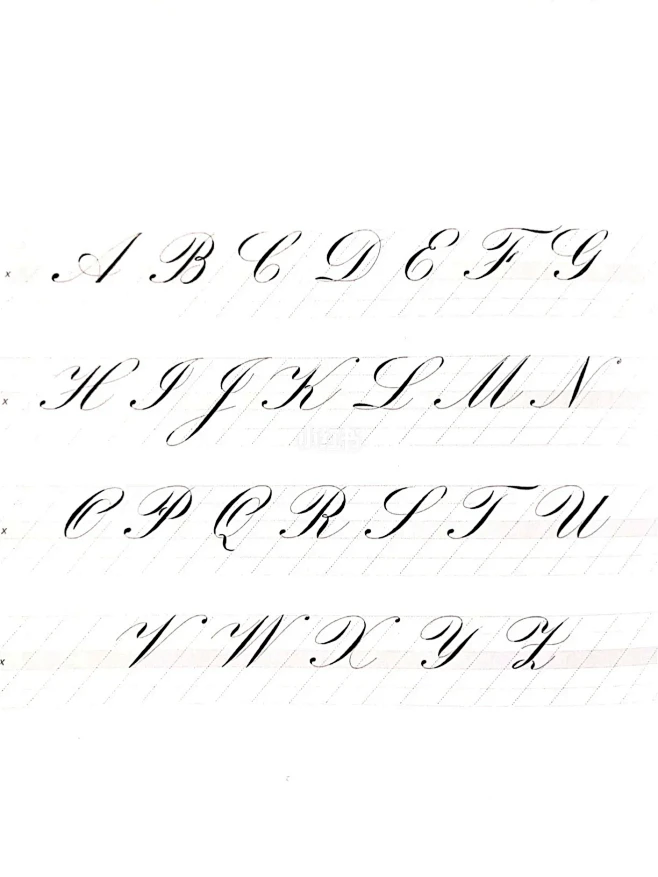 x A B C D E F G
x H I J K L M N
小红书
x O P Q R S T U
x V W X Y Z